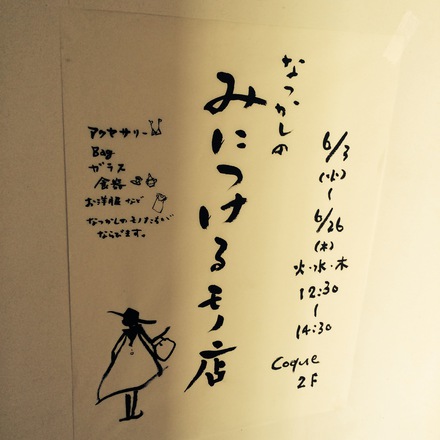 なつかしの
みにつけるモノ店
6/3
(火)
~
6/26
(木)
火・水・木
12:30
~
14:30
Coque
2F
アクセサリー
Bag
ガラス
食器
お洋服 など
なつかしのモノたちが
ならびます。